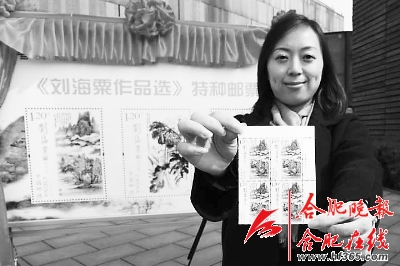 《刘海粟作品选》特种邮票
1.20
1.20
合肥晚报
合肥在线
www.hf365.com